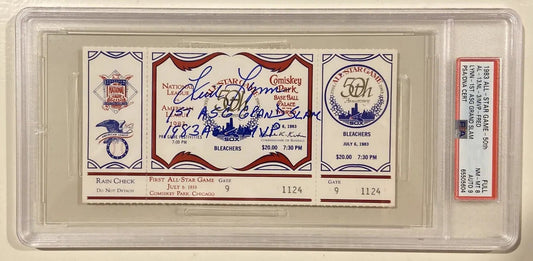 NATIONAL LEAGUE
ALL-STAR GAME
50th
SOX
BLEACHERS
JULY 6, 1983
$20.00 7:30 PM
Comiskey Park
BASE BALL PALACE
Fred Lynn
1ST ASG GRAND SLAM
1983 ASG MVP
RAIN CHECK
DO NOT DETACH
FIRST ALL-STAR GAME
JULY 6, 1933
COMISKEY PARK, CHICAGO
GATE
9
1124
ALL-STAR GAME
50th
SOX
BLEACHERS
JULY 6, 1983
$20.00 7:30 PM
GATE
9
1124
1983 ALL - STAR GAME - 50th
AL - 13/NL - 3/MVP - FRED
LYNN - 1ST ASG GRAND SLAM
PSA/DNA CERT
FULL
NM - MT 8
AUTO 9
65505604
PSA